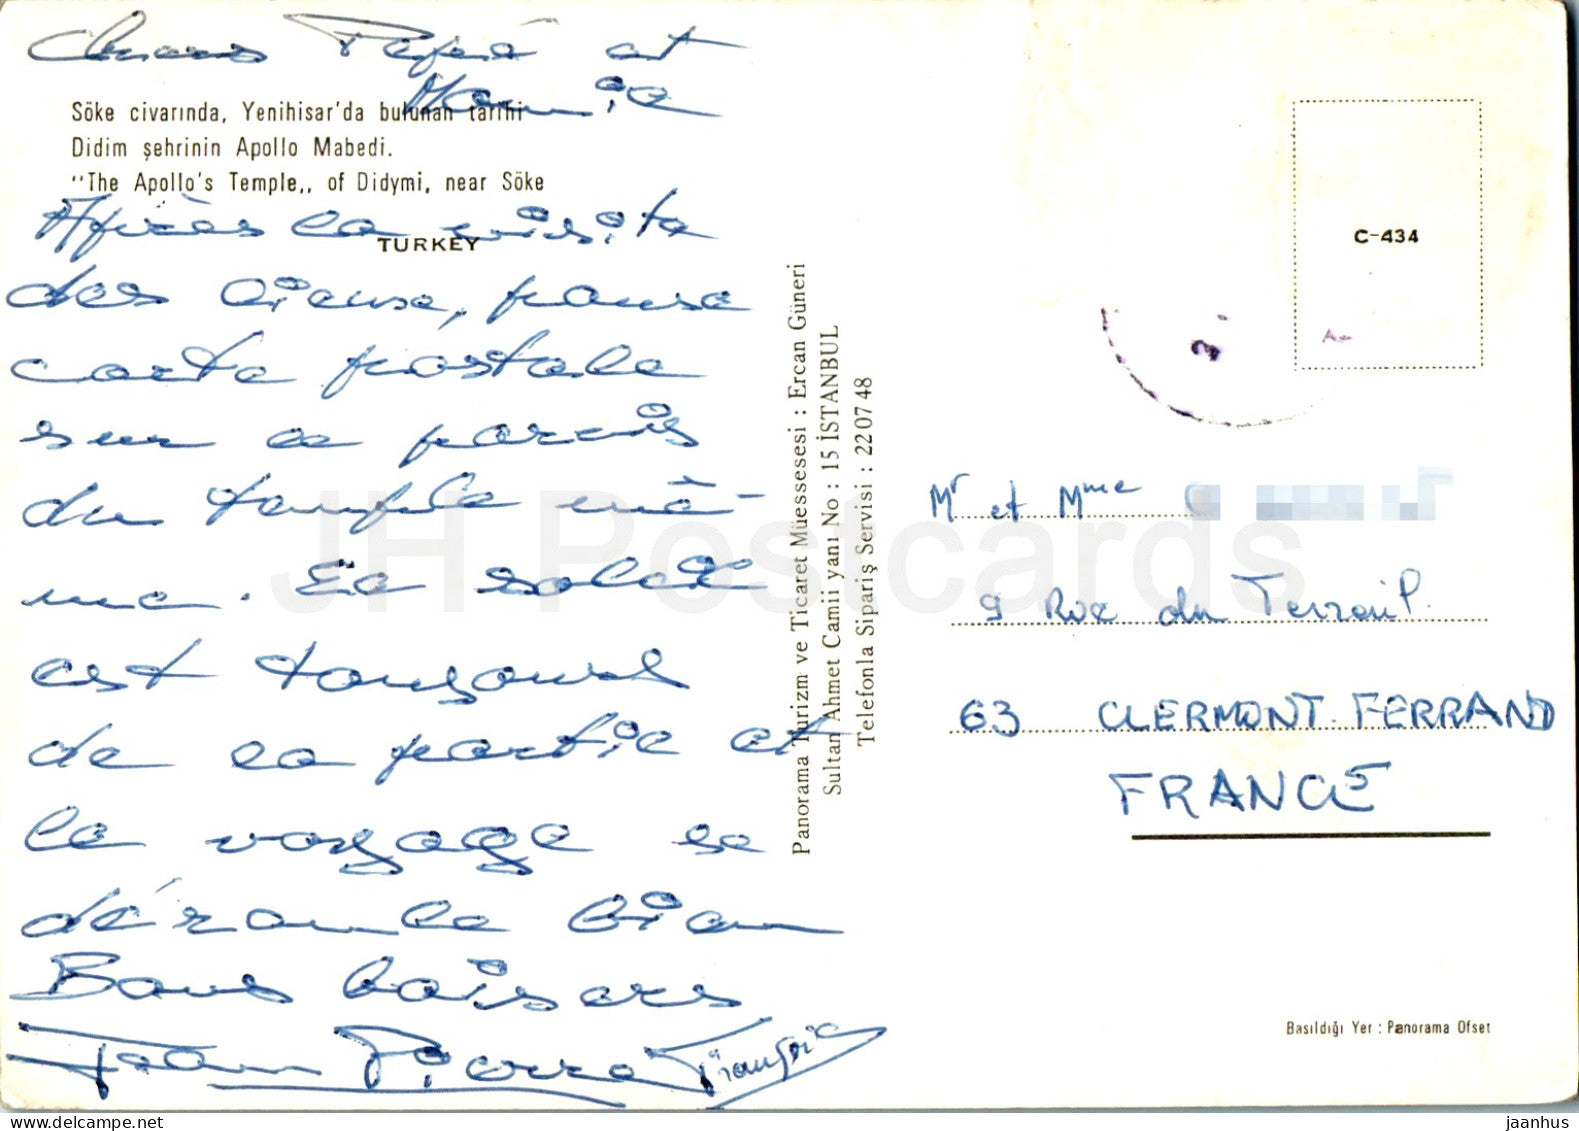 Chers Papé et
Mamie
Söke civarında, Yenihisar'da bulunan tarihi
Didim şehrinin Apollo Mabedi.
"The Apollo's Temple,, of Didymi, near Söke
TURKEY
Après la visite
des lieux, pause
carte postale
sur le parvis
du temple mê-
me. Le soleil
est toujours
de la partie et
le voyage se
déroule bien
Bons baisers
Jean Pierre Françoise
Panorama Turizm ve Ticaret Müessesesi : Ercan Güneri
Sultan Ahmet Camii yanı No : 15 İSTANBUL
Telefonla Sipariş Servisi : 22 07 48
C-434
Mr et Mme
9 Rue du Terrail.
63 CLERMONT. FERRAND
FRANCE
Basıldığı Yer : Panorama Ofset
JH Postcards
delcampe.net
jaanhus